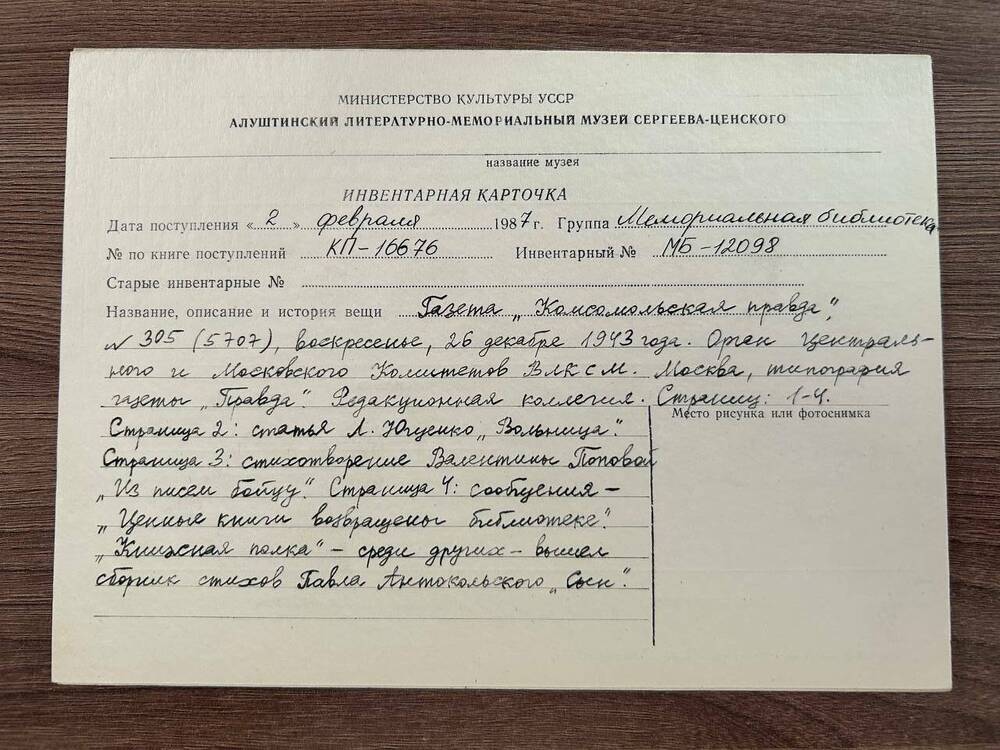 МИНИСТЕРСТВО КУЛЬТУРЫ УССР
АЛУШТИНСКИЙ ЛИТЕРАТУРНО-МЕМОРИАЛЬНЫЙ МУЗЕЙ СЕРГЕЕВА-ЦЕНСКОГО
название музея
ИНВЕНТАРНАЯ КАРТОЧКА
Дата поступления «2» февраля 1987 г. Группа Мемориальная библиотека
№ по книге поступлений КП-16676 Инвентарный № МБ-12098
Старые инвентарные №
Название, описание и история вещи Газета „Комсомольская правда",
№ 305 (5707), воскресенье, 26 декабре 1943 года. Орган Централь-
ного и Московского Комитетов ВЛКСМ. Москва, типография
газеты „Правда". Редакционная коллегия. Страниц: 1-4.
Место рисунка или фотоснимка
Страница 2: статья Л. Ющенко „Вольница".
Страница 3: стихотворение Валентины Поповой
„Из писем бойцу". Страница 4: сообщения –
„Ценные книги возвращены библиотеке".
„Книжная полка" – среди других – вышел
сборник стихов Павла Антокольского „Сын".